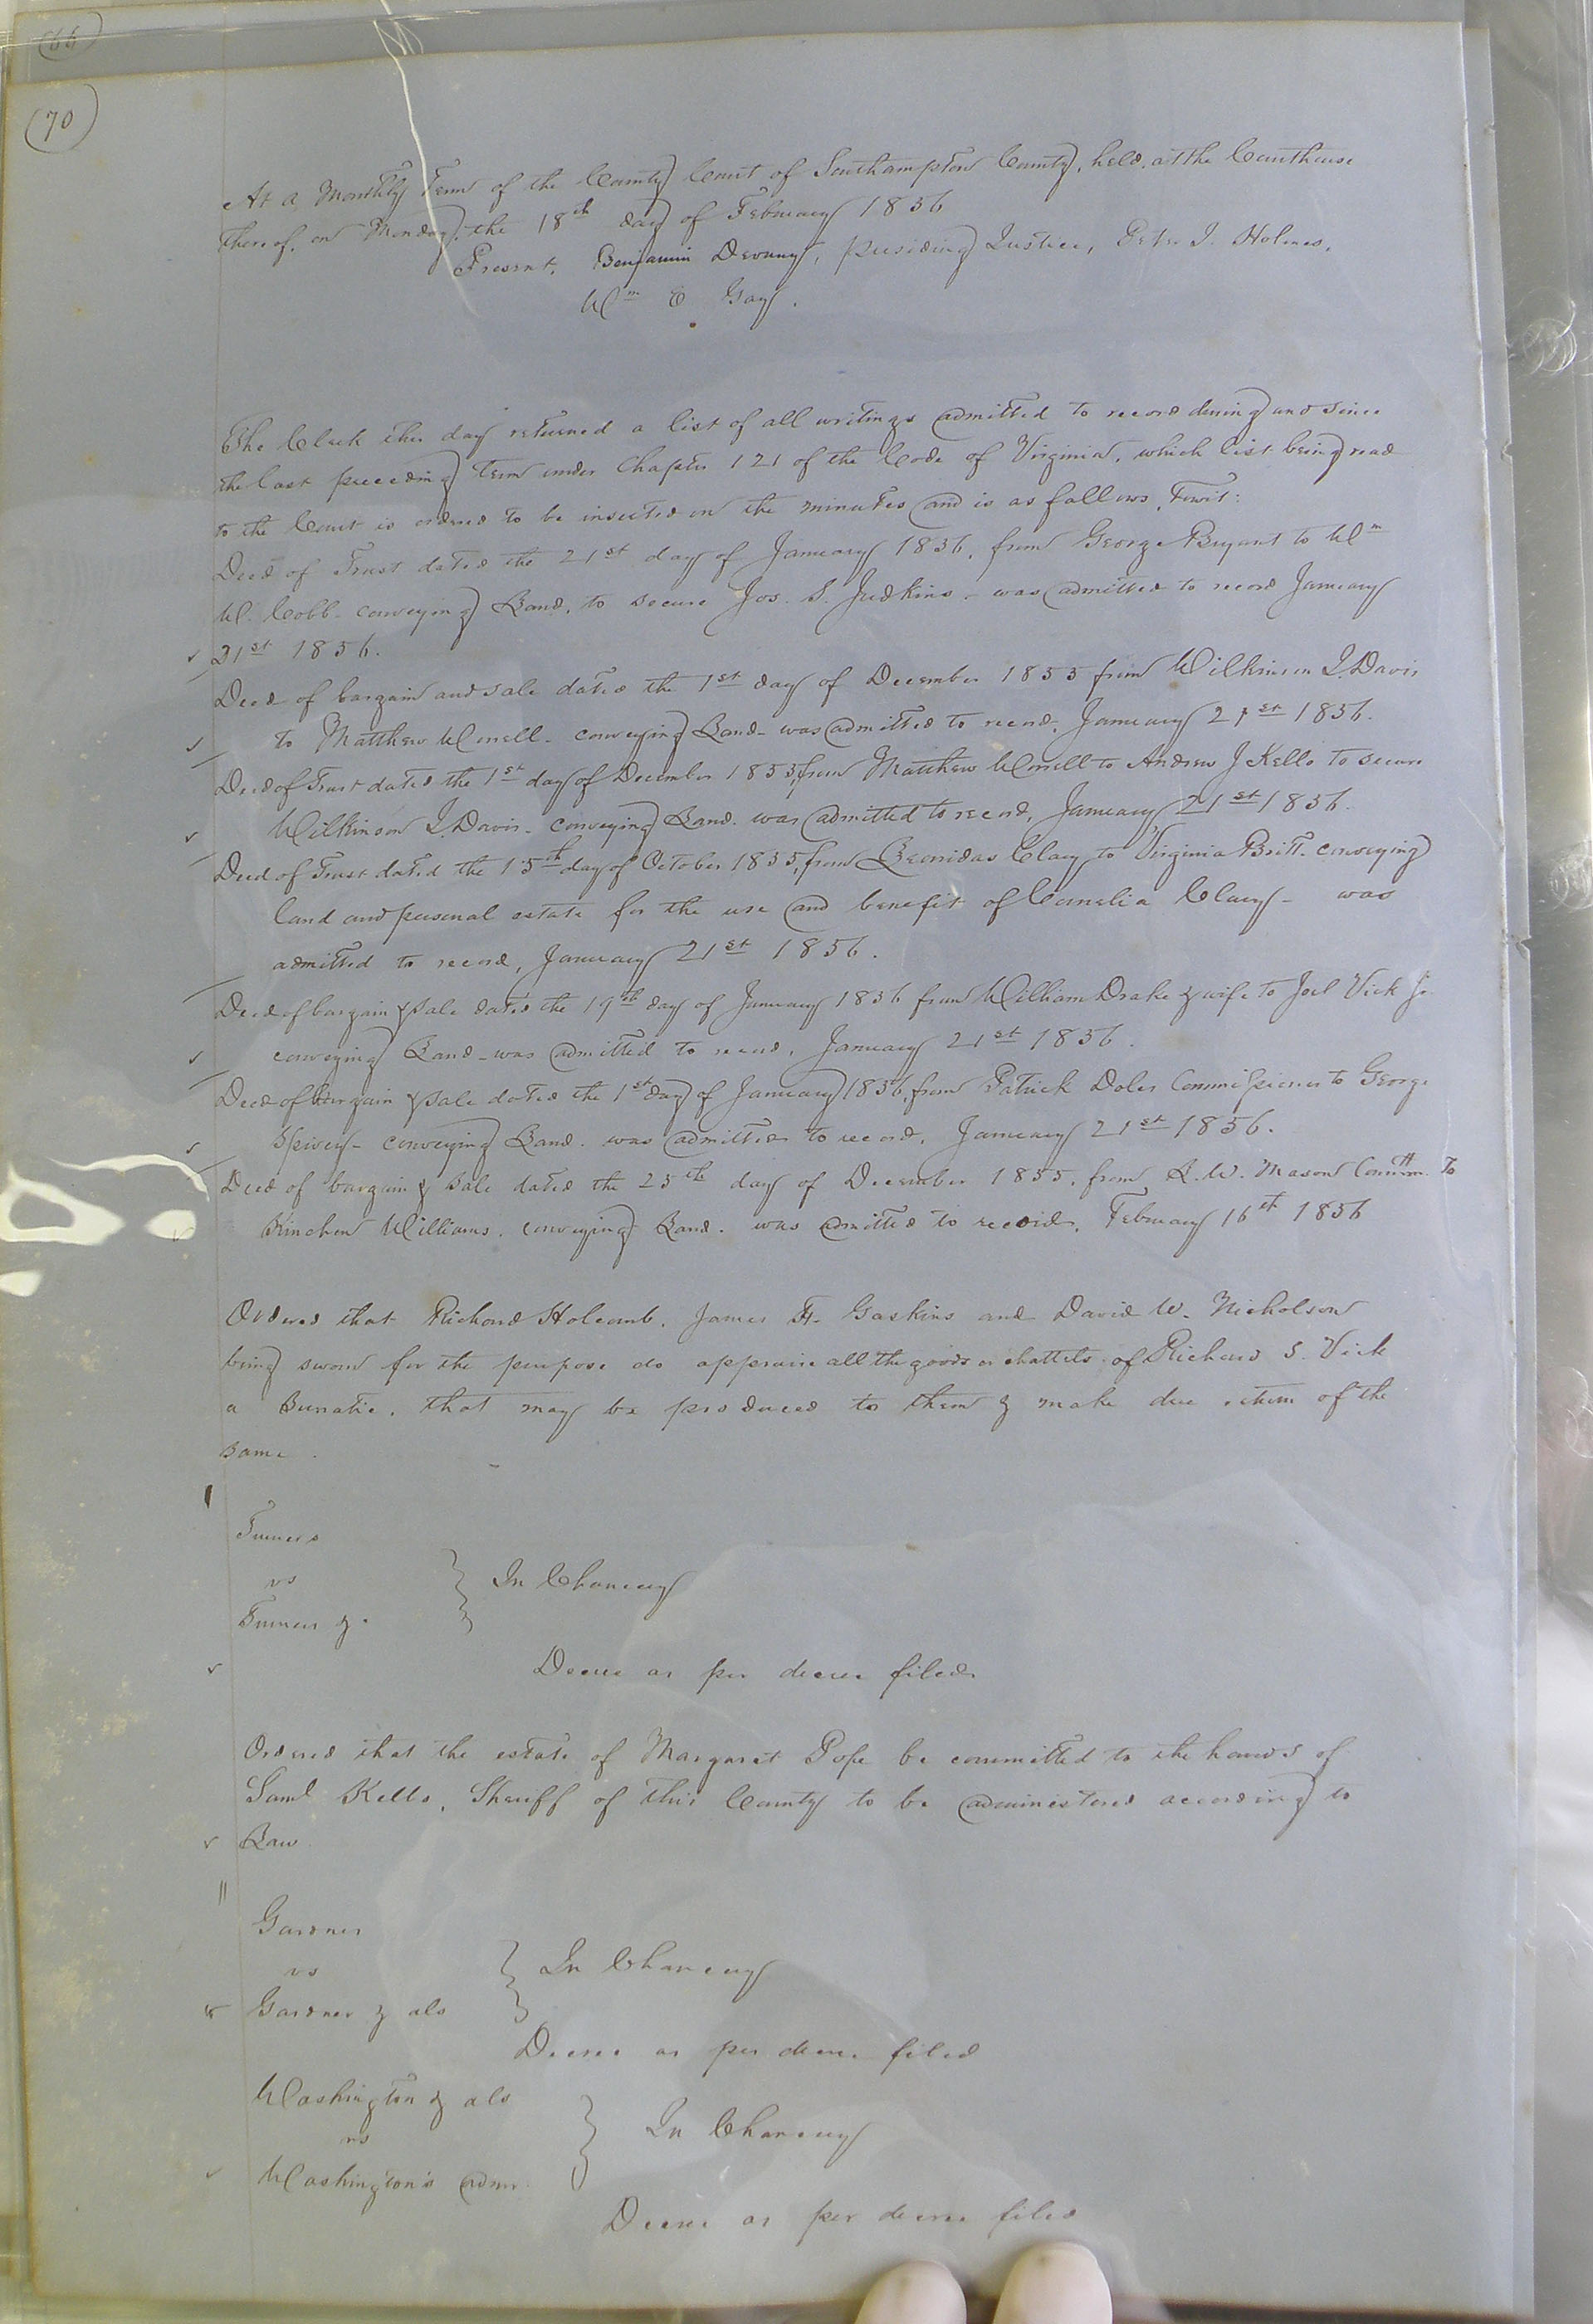 (66)
(70)
At a Monthly Term of the County Court of Southampton County, held at the Courthouse
thereof, on Monday, the 18th day of February 1856
Present, Benjamin Devany, presiding Justice, Peter J. Holmes,
Wm E Gay.
The Clerk this day returned a list of all writings admitted to record during and since
the last preceding Term under Chapter 121 of the Code of Virginia, which list being read
to the Court is ordered to be inserted on the minutes and is as follows, Towit:
Deed of Trust dated the 21st day of January 1856, from George Bryant to Wm
W. Cobb conveying Land, to secure Jos. S. Judkins - was admitted to record January
21st 1856.
Deed of bargain and sale dated the 1st day of December 1855 from Wilkinson J. Davis
to Matthew Worrell - conveying Land - was admitted to record, January 21st 1856.
Deed of Trust dated the 1st day of December 1855, from Matthew Worrell to Andrew J Kello to secure
Wilkinson J. Davis - conveying Land. was admitted to record, January 21st 1856.
Deed of Trust dated the 15th day of October 1855, from Leonidas Clary to Virginia Britt. conveying
land and personal estate for the use and benefit of Cornelia Clary - was
admitted to record, January 21st 1856.
Deed of bargain & sale dated the 19th day of January 1856 from William Drake & wife to Joel Vick Jr
conveying Land - was admitted to record, January 21st 1856.
Deed of bargain & sale dated the 1st day of January 1856, from Patrick Doles Commissioner to George
Spivey - conveying Land. was admitted to record, January 21st 1856.
Deed of bargain & sale dated the 25th day of December 1855, from L. W. Mason Committee To
Kinchen Williams, conveying Land. was admitted to record, February 16th 1856
Ordered that Richard Holcomb, James H. Gaskins and David W. Nicholson
being sworn for the purpose do appraise all the goods or chattels of Richard S. Vick
a Lunatic, that may be produced to them & make due return of the
same.
Turners
vs } In Chancery
Turner &.
Decree as per decree filed
Ordered that the estate of Margaret Pope be committed to the hands of
Saml Kello, Sheriff of this County to be administered according to
Law
Gardner
vs } In Chancery
Gardner & als
Decree as per decree filed
Washington & als
vs } In Chancery
Washington's admr
Decree as per decree filed